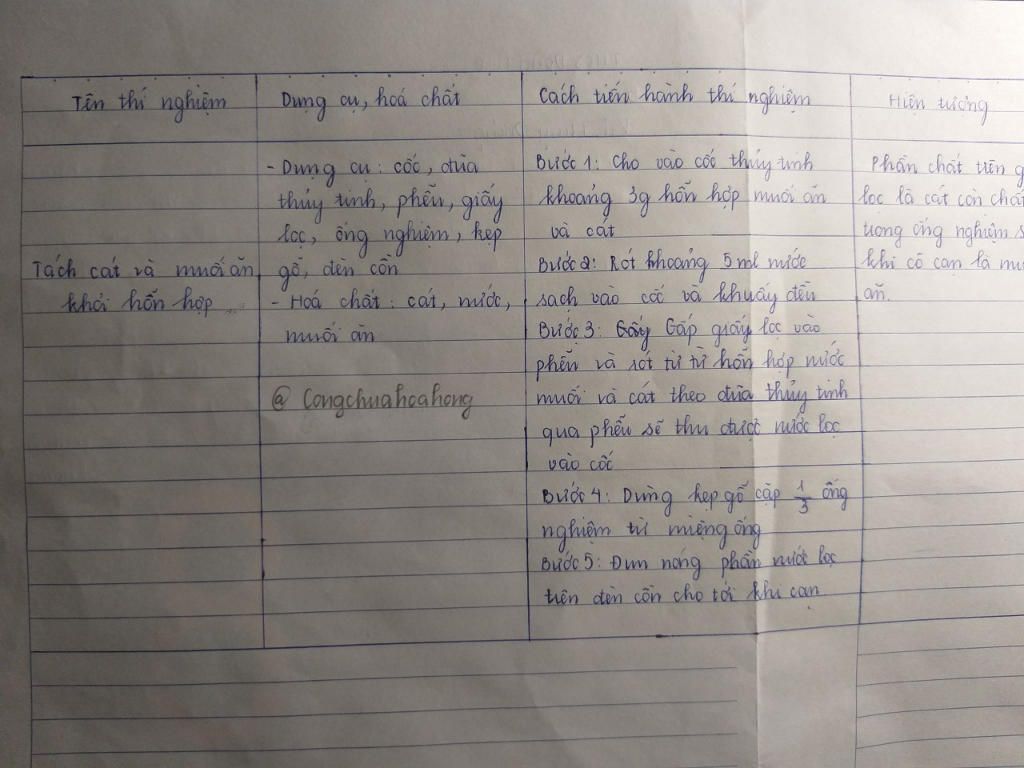 Tên thí nghiệm
Dụng cụ, hoá chất
Cách tiến hành thí nghiệm
Hiện tượng
Tách cát và muối ăn
khỏi hỗn hợp
- Dụng cụ : cốc, đũa
thủy tinh, phễu, giấy
lọc, ống nghiệm, kẹp
gỗ, đèn cồn
- Hoá chất : cát, nước,
muối ăn
@ Congchuahoahong
Bước 1: Cho vào cốc thủy tinh
khoảng 3g hỗn hợp muối ăn
và cát
Bước 2: Rót khoảng 5ml nước
sạch vào cốc và khuấy đều
Bước 3: Gấp giấy lọc vào
phễu và rót từ từ hỗn hợp nước
muối và cát theo đũa thủy tinh
qua phễu sẽ thu được nước lọc
vào cốc
Bước 4: Dùng kẹp gỗ cặp 1/3 ống
nghiệm từ miệng ống
Bước 5: Đun nóng phần nước lọc
trên đèn cồn cho tới khi cạn
Phần chất trên g
lọc là cát còn chấ
trong ống nghiệm s
khi cô cạn là mu
ăn.